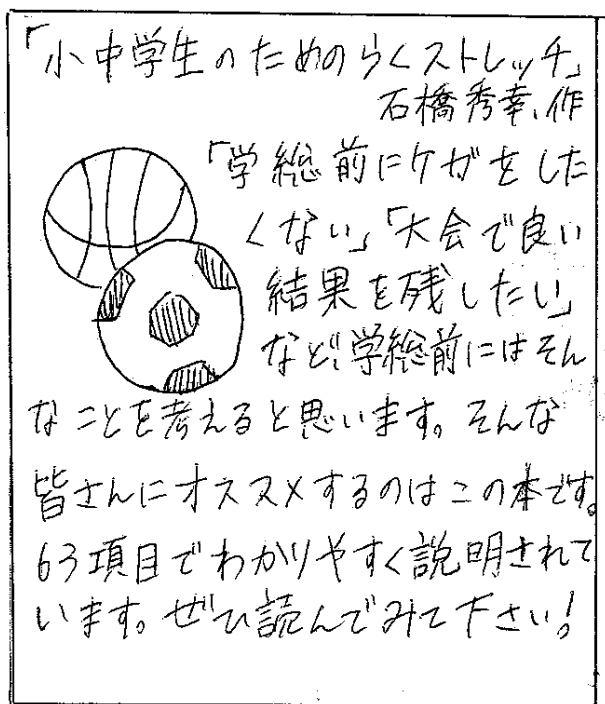 「小中学生のためのらくストレッチ」
石橋秀幸、作
「学総前にケガをした
くない」「大会で良い
結果を残したい」
など、学総前にはそん
なことを考えると思います。そんな
皆さんにオススメするのはこの本です。
63項目でわかりやすく説明されて
います。ぜひ読んでみて下さい!